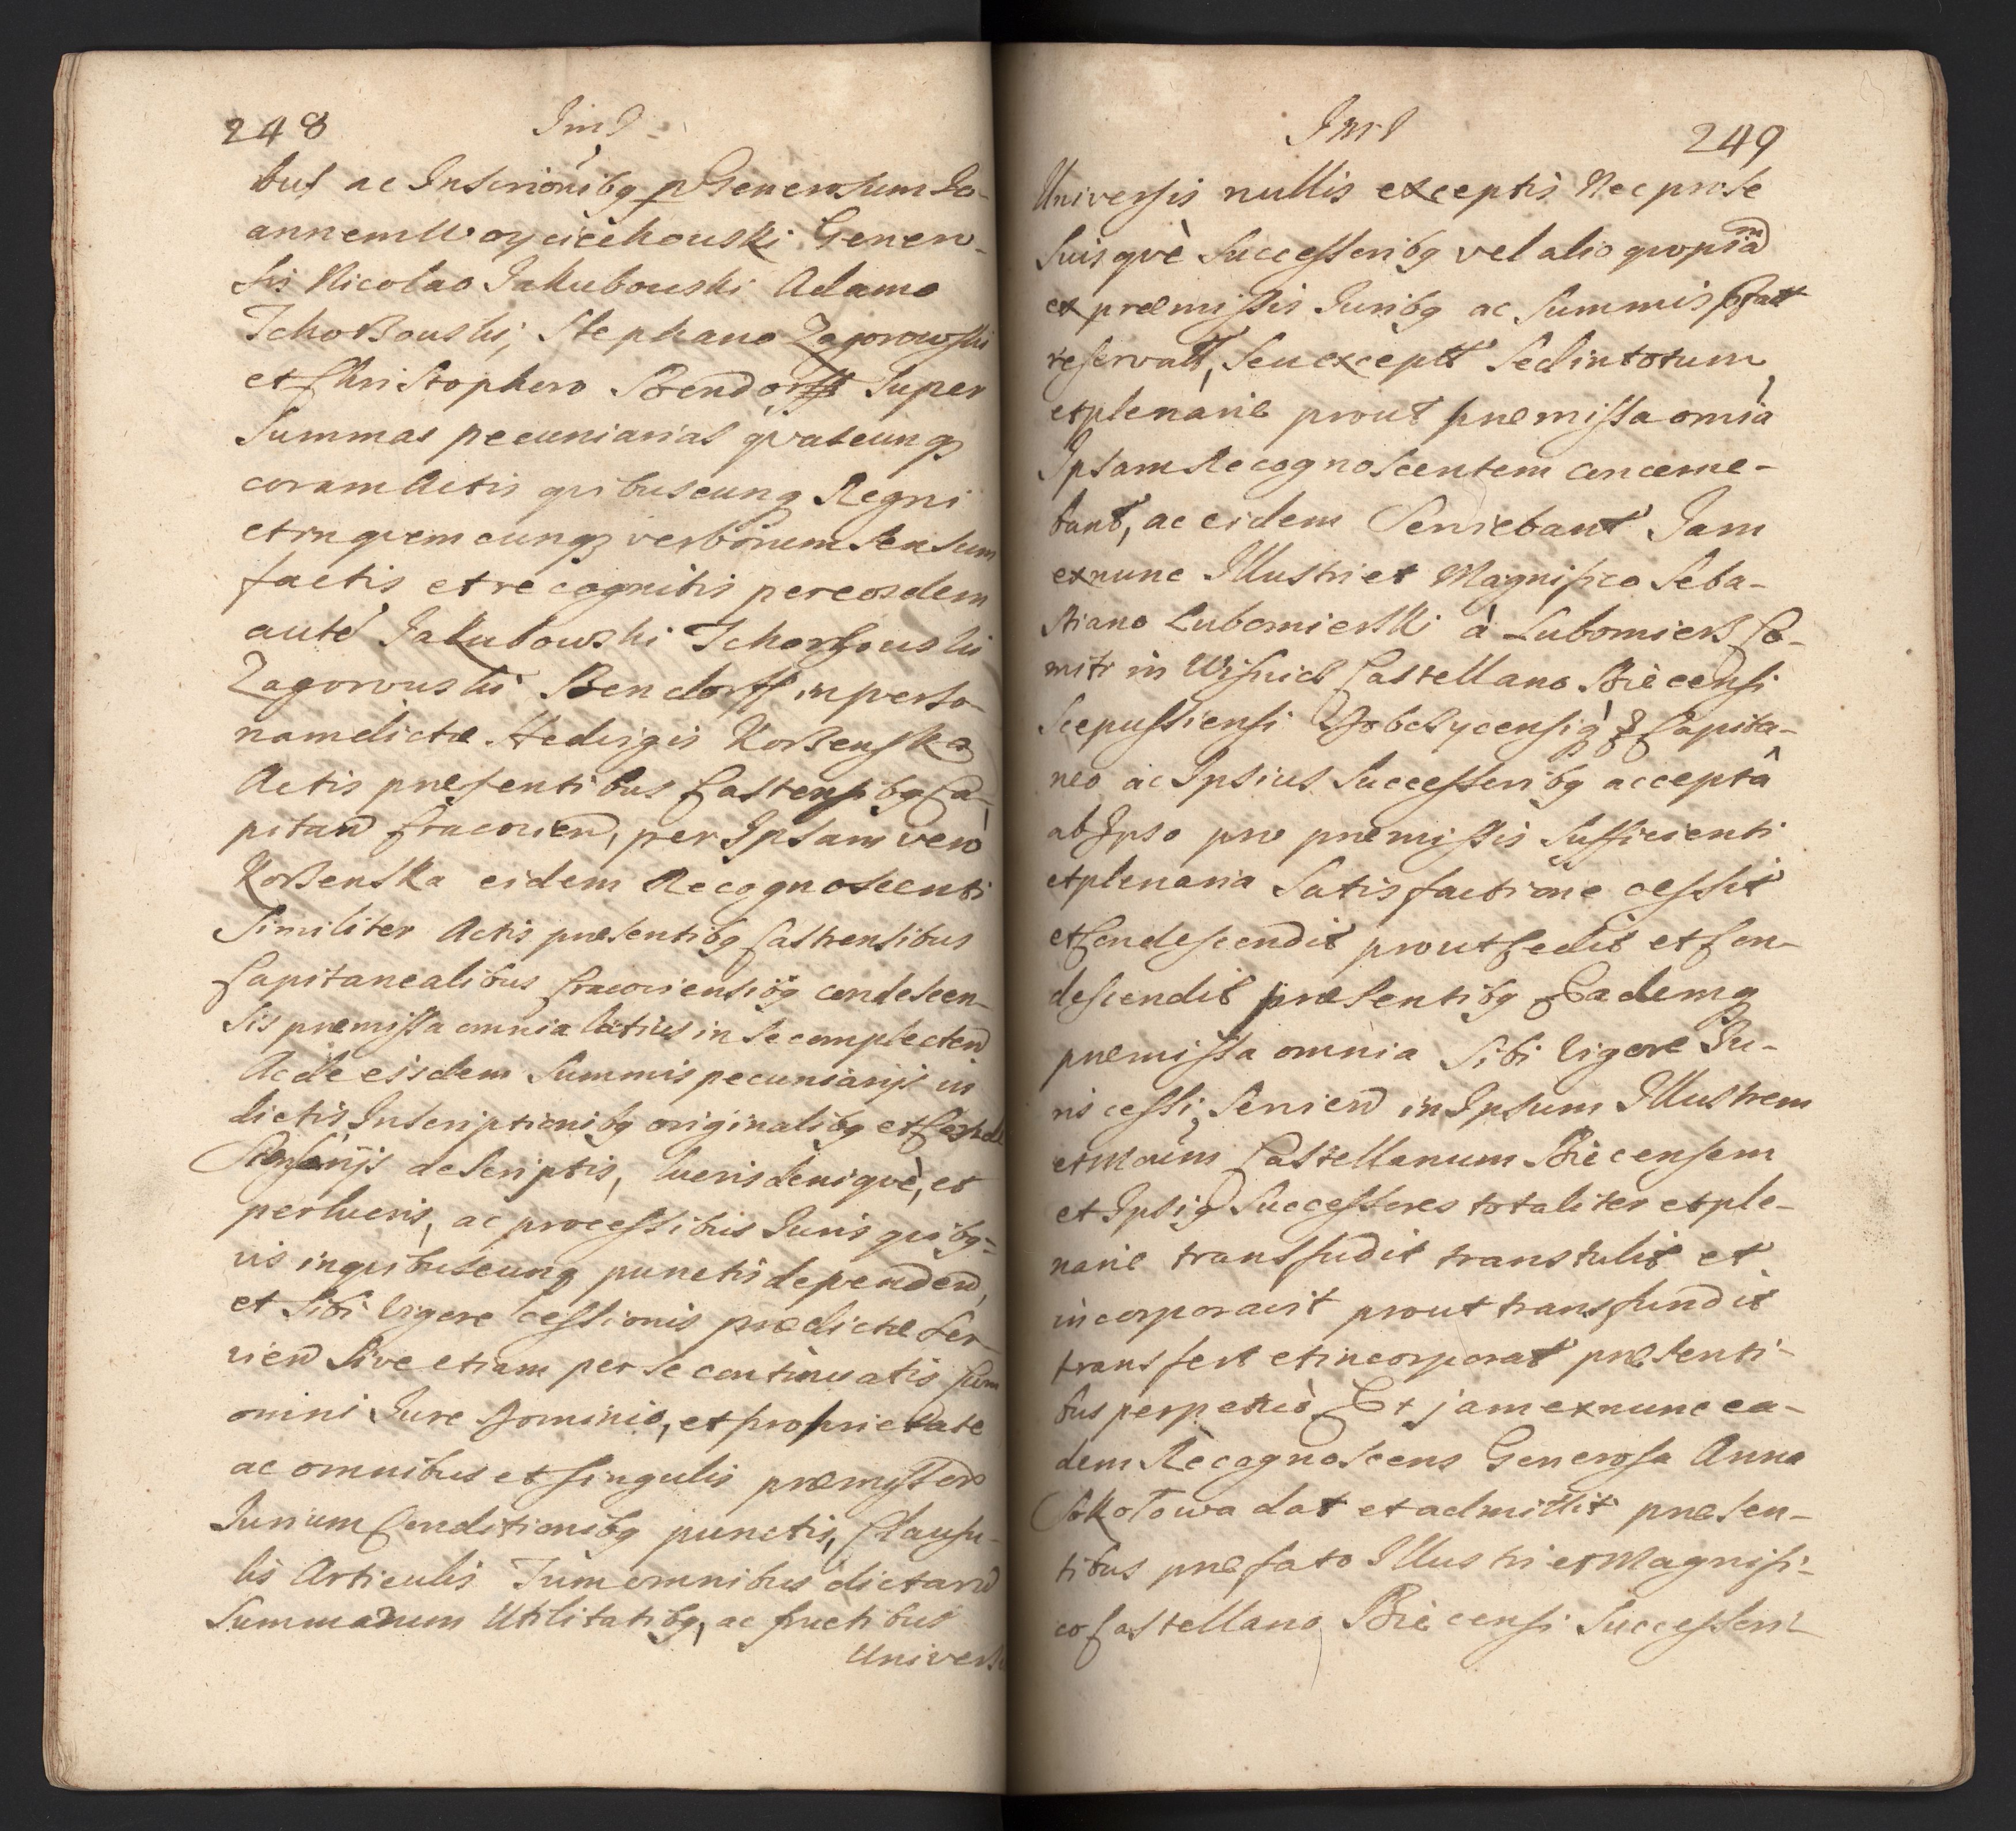 248
bus ac Inscrionibq p Generosum Jo-
annem Woyciechouski Genero-
sis Nicolao Jakubouski Adamo
Schorßouski, Stephano Zagorowski
et Christophero Bendorff Super
Summas pecuniarias qvascunq
coram Actis qvibuscunq Regni
et in qvemcunq verborum Sensum
factis et recognitis per eosdem
auté Jakubowski
Zagorouski Bendorff in perso-
nam dictæ Hedvigis Koßenska
Actis præsentibus Castensibq Ca-
pitan Cracovien, per Ipsam vero
Koßenska eidem Recognoscenti
Similiter Actis præsentibq Castrensibus
Capitanealibus Cracoviensibq condescen-
sis præmissa omnia latius in Se complecten
Ac de eisdem Summis pecuniarijs in
dictis Inscriptionibq originalibq et
descriptis, lucris deniqvè, et
perlucris, ac processibus Juris qvibq=
vis in qvibuscunq punctis dependen,
et Sibi vigore cessionis prædictæ Ser-
vien Sive etiam per Se continuatis Cum
omni Jure Dominio, et proprietate
ac omnibus et Singulis præmyssor
Jurium Conditionibq punctis, Clausu-
lis Articulis Tùm omnibus dictarum
Summarum Utilitatibq, ac fructibus
Universis
249
Universis nullis exceptis Nec pro Se
Suisqvè Successoribq vel alio
ex præmissis Juribq ac Summis
reservatt, Seu exceptt Sed in totum
et plenarie prout præmissa omia
Ipsam Recognoscentem concerne-
bant, ac eidem Serviebant Jam
ex nunc Illustri et Magnifico Seba-
stiano Lubomierski à Lubomierz Co-
miti in Wisnicz Castellano Biecensi
Scepussiensi Dobczycensiq & Capita-
neo ac Ipsius Successoribq acceptâ
ab Ipso pro præmissis Sufficienti
et plenaria Satisfactione cessit
et Condescendit prout Cedit et Con-
descendit præsentibq Eademq
præmissa omnia Sibi vigore Ju-
ris cessi, Servien in Ipsum Illustrem
et Mcum Castellanum Biecensem
et Ipsiq Successores totaliter et ple-
narie transfudit transtulit et
incorporavit prout transfundit
transfert et incorporat præsenti-
bus perpetuò Et jam ex nunc ea-
dem Recognoscens Generosa Anna
Sokolowa dat et admittit præsen-
tibus præfato Illustri et Magnifi-
co Castellano Biecensi Successori-